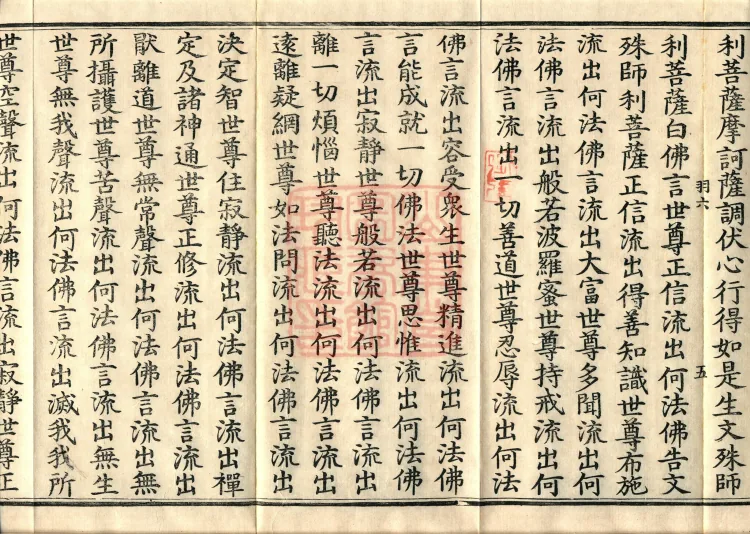 利菩薩摩訶薩調伏心行得如是生文殊師
羽六
五
利菩薩白佛言世尊正信流出何法佛告文
殊師利菩薩正信流出得善知識世尊布施
流出何法佛言流出大富世尊多聞流出何
法佛言流出般若波羅蜜世尊持戒流出何
法佛言流出一切善道世尊忍辱流出何法
佛言流出容受衆生世尊精進流出何法佛
言能成就一切佛法世尊思惟流出何法佛
言流出寂靜世尊般若流出何法佛言流出
離一切煩惱世尊聽法流出何法佛言流出
遠離疑網世尊如法問流出何法佛言流出
決定智世尊住寂靜流出何法佛言流出禪
定及諸神通世尊正修流出何法佛言流出
猒離道世尊無常聲流出何法佛言流出無
所攝護世尊苦聲流出何法佛言流出無生
世尊無我聲流出何法佛言流出滅我我所
世尊空聲流出何法佛言流出寂靜世尊正